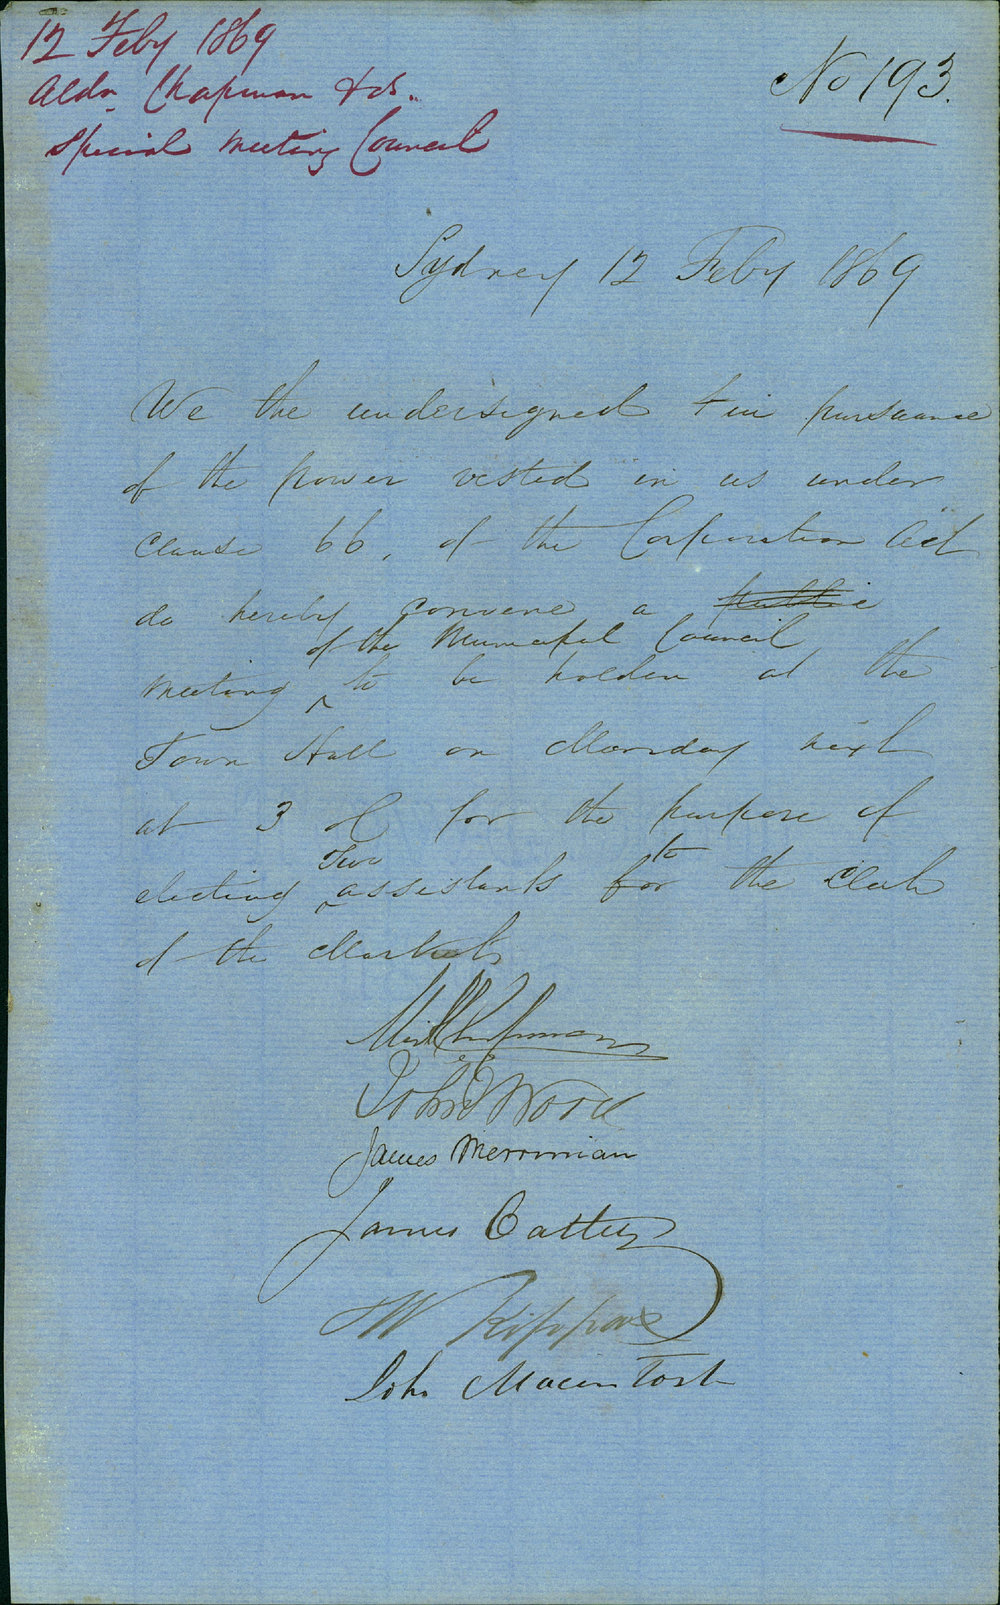 12 Feby 1869
Aldn Chapman & ors.
Special Meeting Council
No 193.
Sydney 12 Feby 1869
We the undersigned & in pursuance
of the power vested in us under
clause 66, of the Corporation Act
do hereby convene a public
of the Municipal Council
meeting ^ to be holden at the
Town Hall on Monday next
at 3 for the purpose of
Two to
electing ^ assistants for the Clerk
of the Markets
Chapman
John Wood
James Merriman
James Oatley
W Kippax
John Macintosh